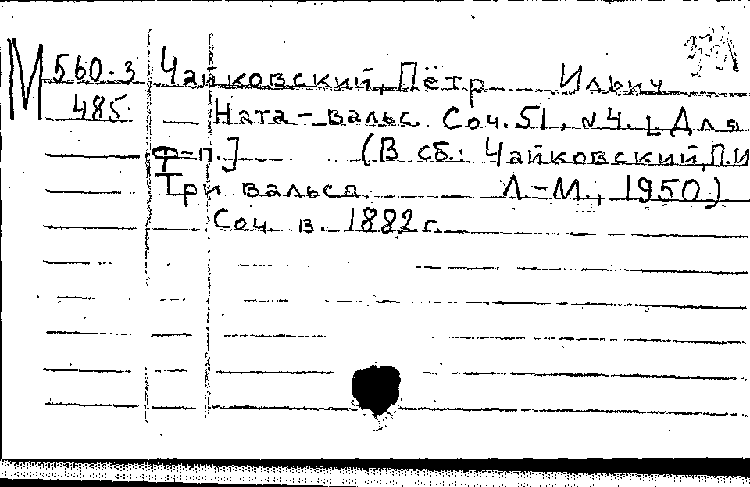 М 560-3 Чайковский, Пётр Ильич
485 Ната - вальс. Соч. 51, № 4. [Для
ф-п.] (В сб.: Чайковский, П.И
Три вальса. Л.-М., 1950)
Соч. в. 1882 г.